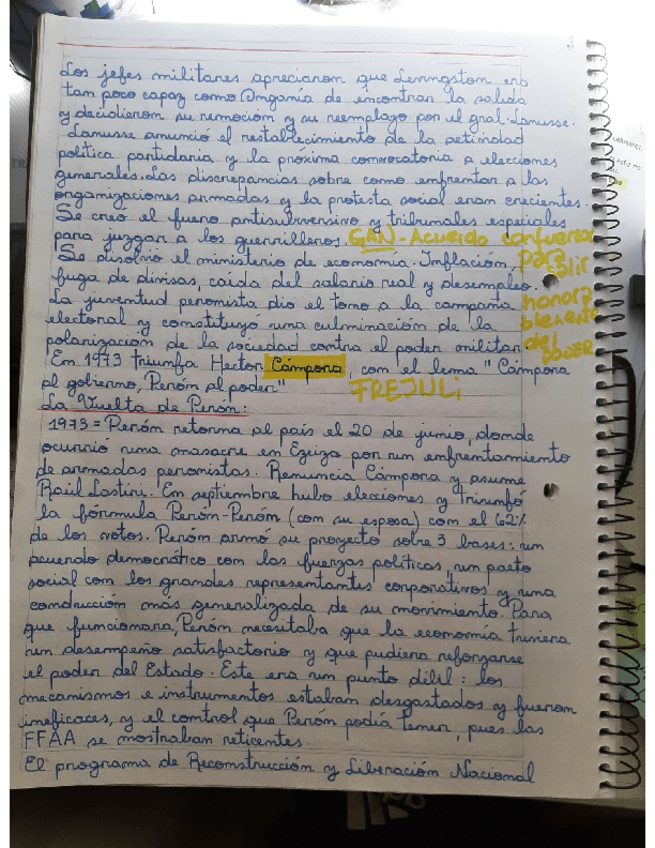 Los jefes militares apreciaron que Levingston era
tan poco capaz como Onganía de encontrar la salida
y decidieron su remoción y su reemplazo por el gral. Lanusse.
Lanusse anunció el restablecimiento de la actividad
política partidaria y la próxima convocatoria a elecciones
generales. Las discrepancias sobre como enfrentar a las
organizaciones armadas y la protesta social eran crecientes.
Se creó el fuero antisubversivo y tribunales especiales
para juzgar a los guerrilleros. GAN - Acuerdo con fuerzas
Se disolvió el ministerio de economía. Inflación, para salir
fuga de divisas, caída del salario real y desempleo.
La juventud peronista dio el tono a la campaña honora
electoral y constituyó una culminación de la blemente
polarización de la sociedad contra el poder militar. del
En 1973 triunfa Hector Cámpora, con el lema "Cámpora poder
al gobierno, Perón al poder" FREJULI
La Vuelta de Perón:
1973 = Perón retorna al país el 20 de junio, donde
ocurrió una masacre en Ezeiza por un enfrentamiento
de armadas peronistas. Renuncia Cámpora y asume
Raúl Lastiri. En septiembre hubo elecciones y triunfó
la fórmula Perón-Perón (con su esposa) con el 62%
de los votos. Perón armó su proyecto sobre 3 bases: un
acuerdo democrático con las fuerzas políticas, un pacto
social con los grandes representantes corporativos y una
conducción más generalizada de su movimiento. Para
que funcionara, Perón necesitaba que la economía tuviera
un desempeño satisfactorio y que pudiera reforzarse
el poder del Estado. Este era un punto dilil: los
mecanismos e instrumentos estaban desgastados y fueron
ineficaces, y el control que Perón podía tener, pues las
FFAA se mostraban reticentes.
El programa de Reconstrucción y Liberación Nacional